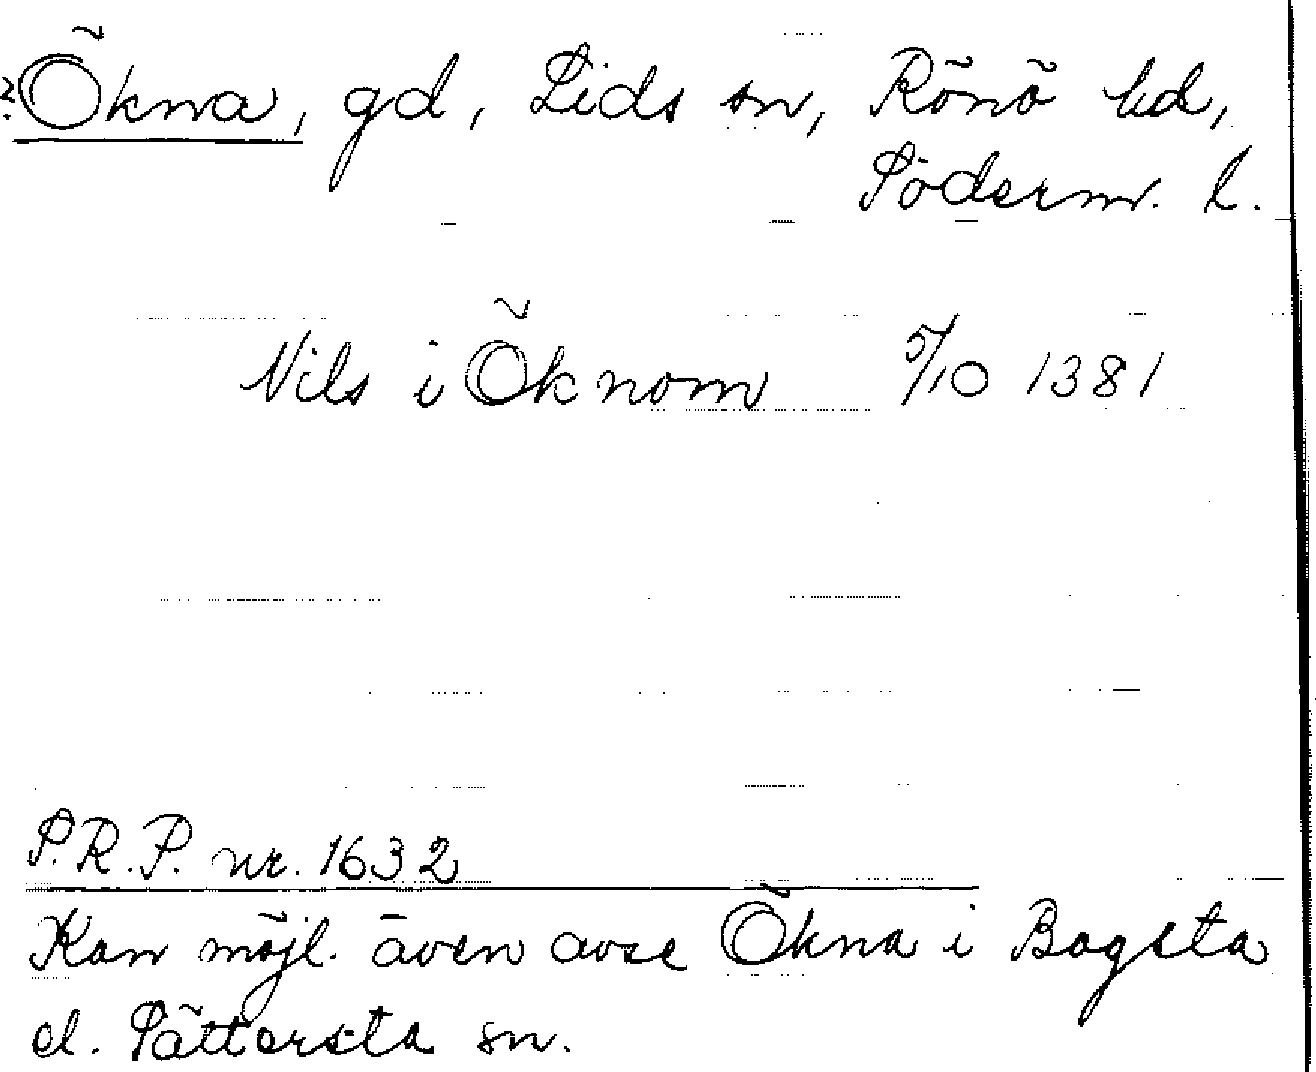 ?Ökna, gd, Lids sn, Rönö hd,
Söderm. l.
Nils i Öknom 5/10 1381
S.R.P. nr. 1632
Kan möjl. även avse Ökna i Bogsta
el. Sättersta sn.